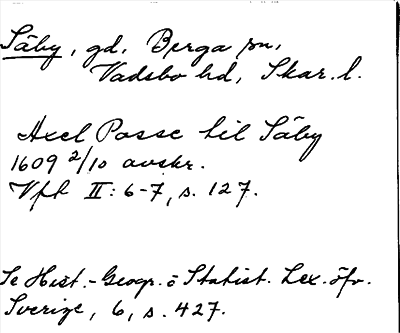 Säby, gd, Berga sn,
Vadsbo hd, Skar. l.
Axel Posse till Säby
1609 2/10 avskr.
Vft II: 6-7, s. 127.
Se Hist.-Geogr. o Statist. Lex. öfv.
Sverige, 6, s. 427.